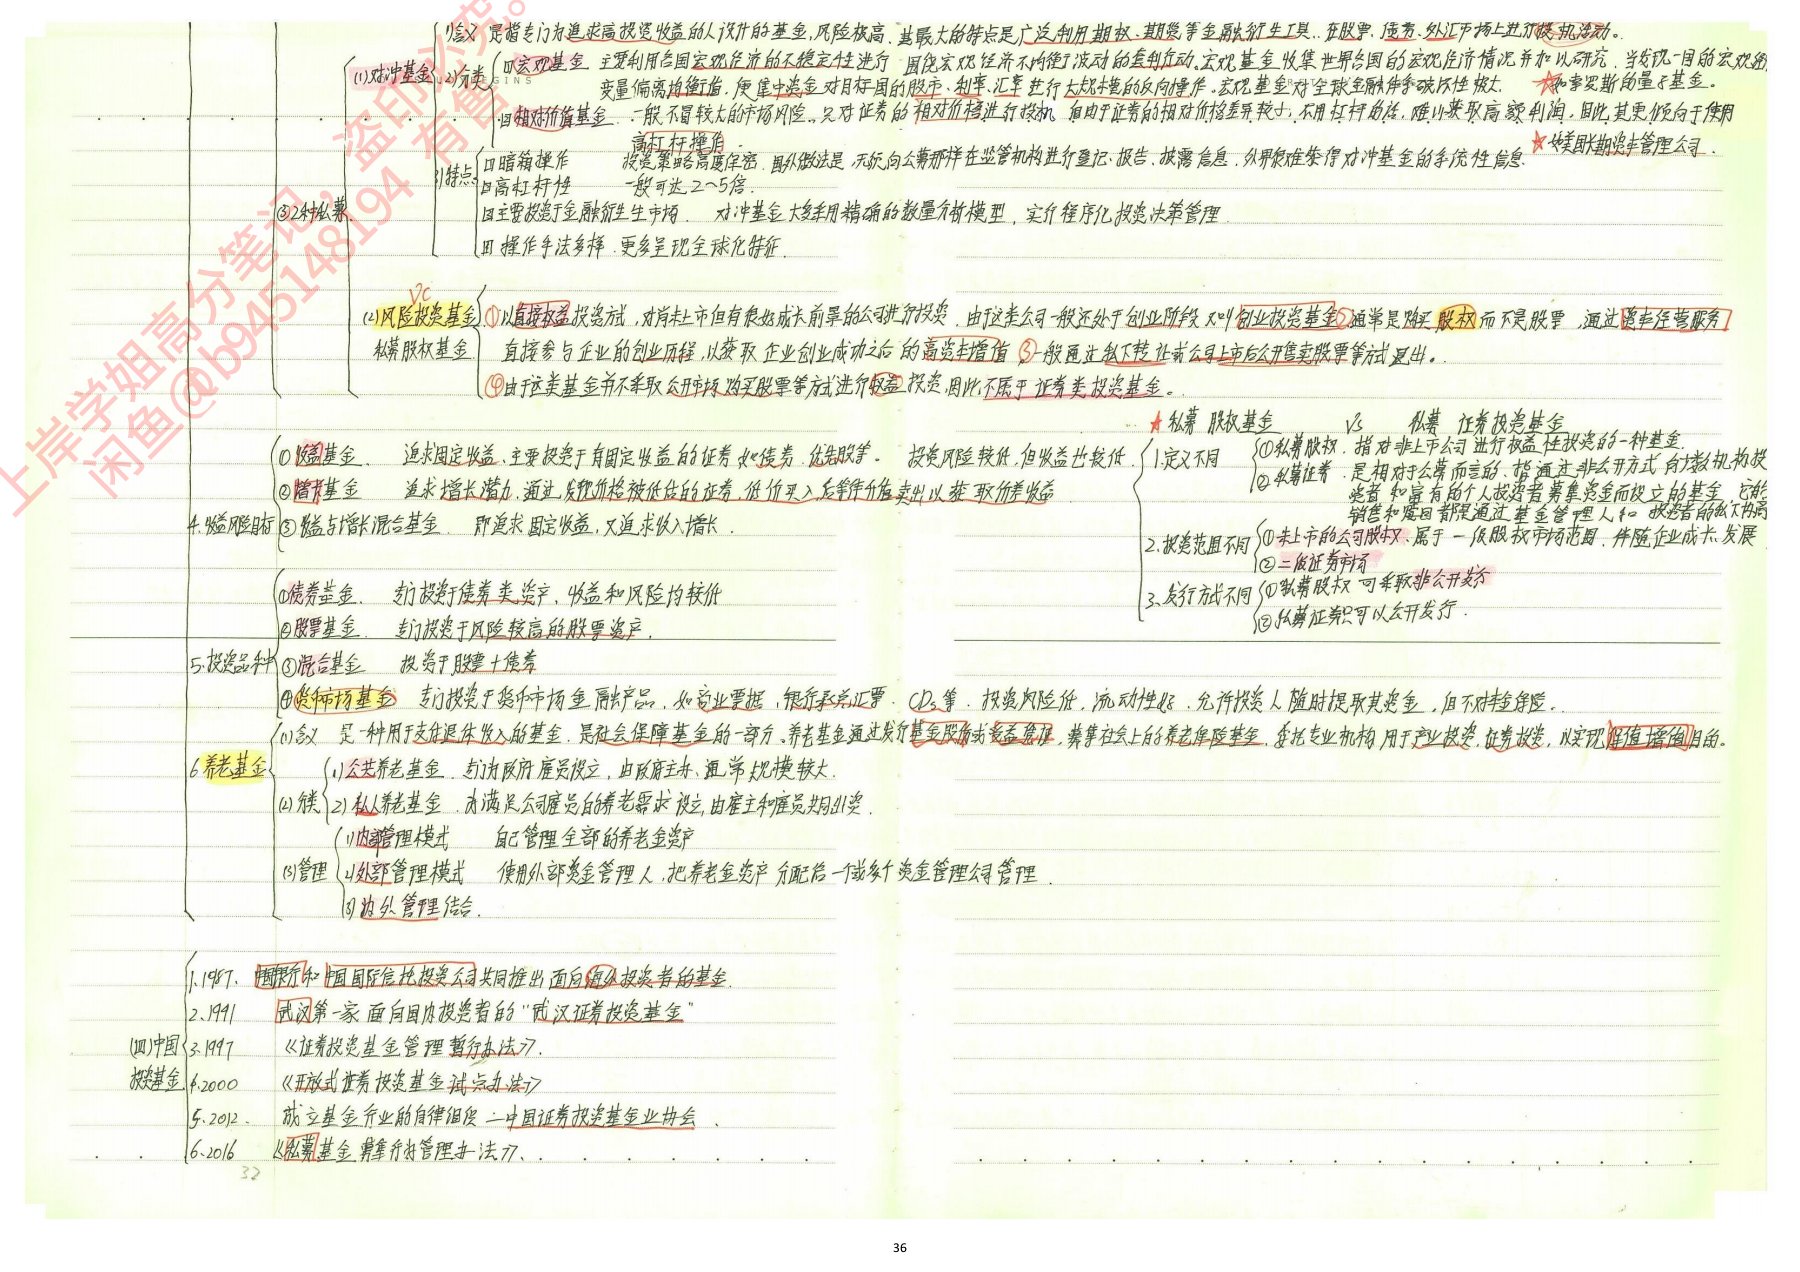 1)含义 是指专门为追求高投资收益的人设计的基金,风险极高.其最大的特点是广泛利用期权、期货等金融衍生工具.在股票、债券、外汇市场上进行投机活动。
(1)对冲基金 2)分类 ①宏观基金 主要利用各国宏观经济的不稳定性进行 围绕宏观经济不均衡波动的套利行动.宏观基金收集世界各国的宏观经济情况并加以研究.当发现一国的宏观经
变量偏离均衡值.便集中资金对目标国的股市、利率、汇率进行大规模的反向操作.宏观基金对全球金融体系破坏性极大. ★如索罗斯的量子基金。
②相对价值基金 一般不冒较大的市场风险.只对证券的相对价格进行投机 但由于证券的相对价格差异较小,不用杠杆的话,难以获取高额利润,因此,其更倾向于使用
高杠杆操作. ★如美国长期资本管理公司.
3)特点 ①暗箱操作 投资策略高度保密.国外做法是:无须向公募那样在监管机构进行登记、报告、披露信息.外界很难获得对冲基金的系统性信息.
②高杠杆性 一般可达2~5倍.
③2种私募 ③主要投资于金融衍生生市场. 对冲基金大多采用精确的数量分析模型,实行程序化投资决策管理.
④操作手法多样.更多呈现全球化特征.
VC
(2)风险投资基金 ①以直接权益投资方式,对尚未上市但有很好成长前景的公司进行投资.由于这类公司一般还处于创业阶段 又叫创业投资基金②通常是购买股权而不是股票.通过资本经营服务
私募股权基金 直接参与企业的创业历程,以获取企业创业成功之后的高资本增值③一般通过私下转让或公司上市后公开售卖股票等方式退出。
④由于这类基金并不采取公开市场购买股票等方式进行权益投资.因此,不属于证券类投资基金。
★私募股权基金 VS 私募证券投资基金
4.收益风险目标 ①收益基金. 追求固定收益、主要投资于有固定收益的证券 如债券.优先股等。 投资风险较低,但收益也较低.
②增长基金 追求增长潜力.通过发现价格被低估的证券,低价买入后等待价值卖出以获取价差收益
③收益与增长混合基金. 即追求固定收益,又追求收入增长.
1.定义不同 ①私募股权.指对非上市公司进行权益性投资的一种基金.
②私募证券.是相对于公募而言的.指通过非公开方式向少数机构投
资者和富有的个人投资者募集资金而设立的基金.它的
销售和赎回都是通过基金管理人和投资者的私下协商
2.投资范围不同 ①未上市的公司股权、属于一级股权市场范围.伴随企业成长、发展
②二级证券市场
3.发行方式不同 ①私募股权可采取非公开发行
②私募证券只可以公开发行.
5.投资品种 ①债券基金. 专门投资于债券类资产、收益和风险均较低
②股票基金. 专门投资于风险较高的股票资产.
③混合基金 投资于股票+债券
④货币市场基金 专门投资于货币市场金融产品,如商业票据,银行承兑汇票、CDs等.投资风险低,流动性好.允许投资人随时提取其资金,但不对本金保险。
6.养老基金 (1)含义 是一种用于支付退休收入的基金.是社会保障基金的一部分.养老基金通过发行基金股份或受益凭证,募集社会上的养老保险基金.委托专业机构用于产业投资,证券投资,以实现保值增值目的。
(2)分类 1)公共养老基金. 专门为政府雇员设立,由政府主办、通常规模较大.
2)私人养老基金. 为满足公司雇员的养老需求设立,由雇主和雇员共同出资.
(3)管理 1)内部管理模式 自己管理全部的养老金资产
2)外部管理模式 使用外部资金管理人,把养老金资产分配给一个或多个资金管理公司管理.
3)内外管理结合.
(四)中国投资基金
1.1987、中国银行和中国国际信托投资公司共同推出面向海外投资者的基金.
2.1991 武汉第一家面向国内投资者的“武汉证券投资基金”
3.1997 《证券投资基金管理暂行办法》.
4.2000 《开放式证券投资基金试点办法》
5.2012. 成立基金行业的自律组织二中国证券投资基金业协会.
6.2016 《私募基金募集行为管理办法》、
32
36
上岸学姐高分笔记，盗印必究。
闲鱼@b945148194 有售